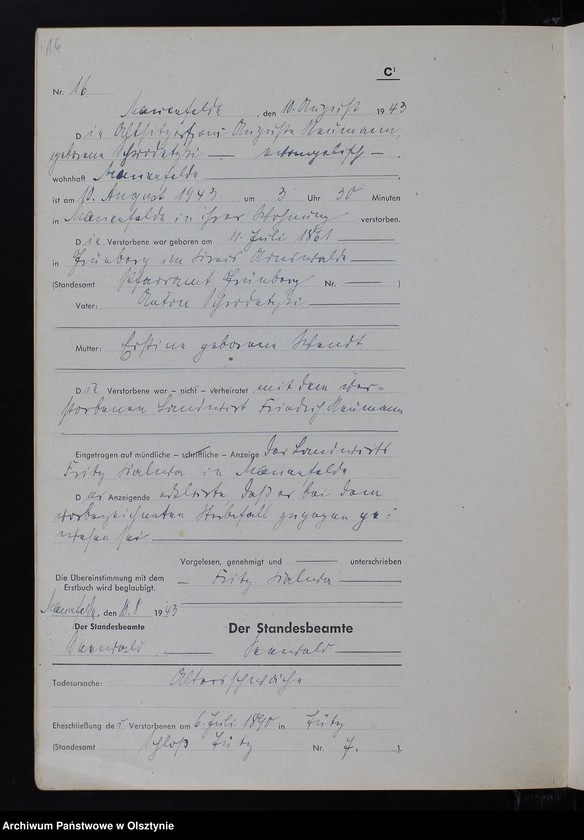 16
C¹
Nr. 16
Marienfelde, den 10. August 1943
Die Altsitzerfrau Auguste Naumann,
geborene — evangelisch —.
wohnhaft Marienfelde
ist am August 1943 um 3 Uhr 30 Minuten
in Marienfelde in ihrer Wohnung verstorben.
Die Verstorbene war geboren am 11. Juli 1861
in Grünberg im Kreis Arnswalde
(Standesamt Pfarramt Grünberg Nr. — )
Vater: Anton
Mutter: geborene Wendt
Die Verstorbene war – nicht – verheiratet mit dem ver=
storbenen Landwirt Friedrich Naumann
Eingetragen auf mündliche – schriftliche – Anzeige des Landwirts
Fritz in Marienfelde
Der Anzeigende erklärte, daß er bei dem
vorbezeichneten Sterbefall zugegen ge=
wesen sei
Vorgelesen, genehmigt und — unterschrieben
Die Übereinstimmung mit dem
Erstbuch wird beglaubigt.
Fritz
Marienfelde, den 1943
Der Standesbeamte
Der Standesbeamte
Todesursache: Altersschwäche
Eheschließung der Verstorbenen am 6. Juli 1890 in Zütz
(Standesamt Schloß Zütz Nr. 7. ).
Archiwum Państwowe w Olsztynie